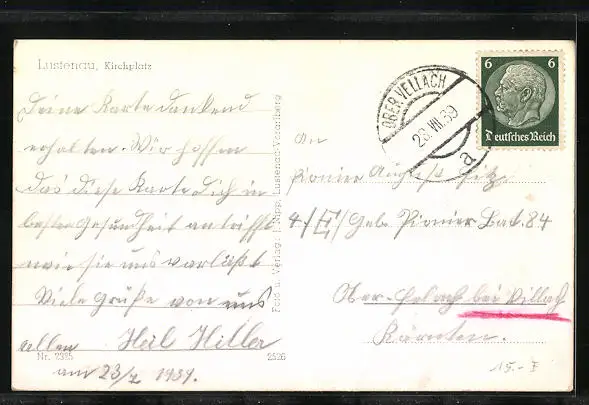 Lustenau, Kirchplatz
Deine Karte dankend
erhalten. Wir hoffen
das diese Karte Dich in
bester Gesundheit antrifft
wie sie uns verläßt
Viele Grüße von uns
allen Heil Hitler
am 23/7 1939.
Nr. 2325
2526
Foto u. Verlag J. Lustenau-Vorarlberg
OBERVELLACH
28.VII.39
a
6 6
Deutsches Reich
An
Pionier August
4/II/Geb. Pionier Bat. 84
Ober- bei Villach
Kärnten.
15.- I